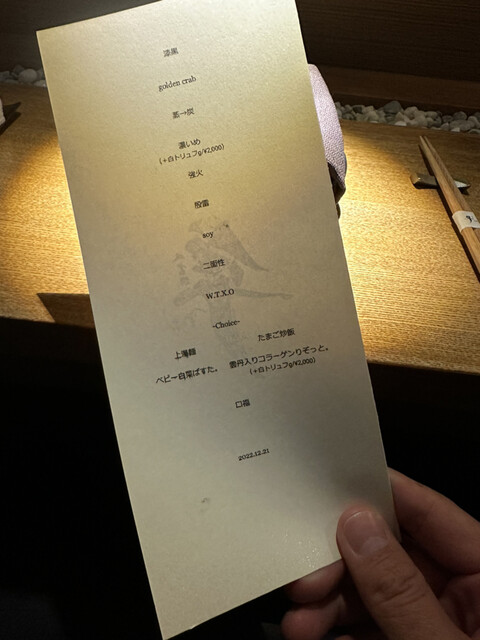 漆黒
golden crab
蒸→炭
濃いめ
(+白トリュフg/¥2,000)
強火
殷雷
soy
二面性
W.T.X.O
-Choice-
上海麺 たまご炒飯
ベビー白菜ぱすた。 雲丹入りコラーゲンりぞっと。
(+白トリュフg/¥2,000)
口福
2022.12.21